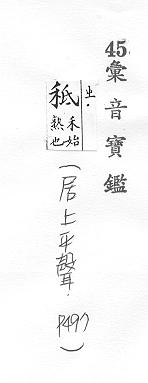 45.彙音寶鑑
秪
禾始
熟也
(居上平聲. P497)